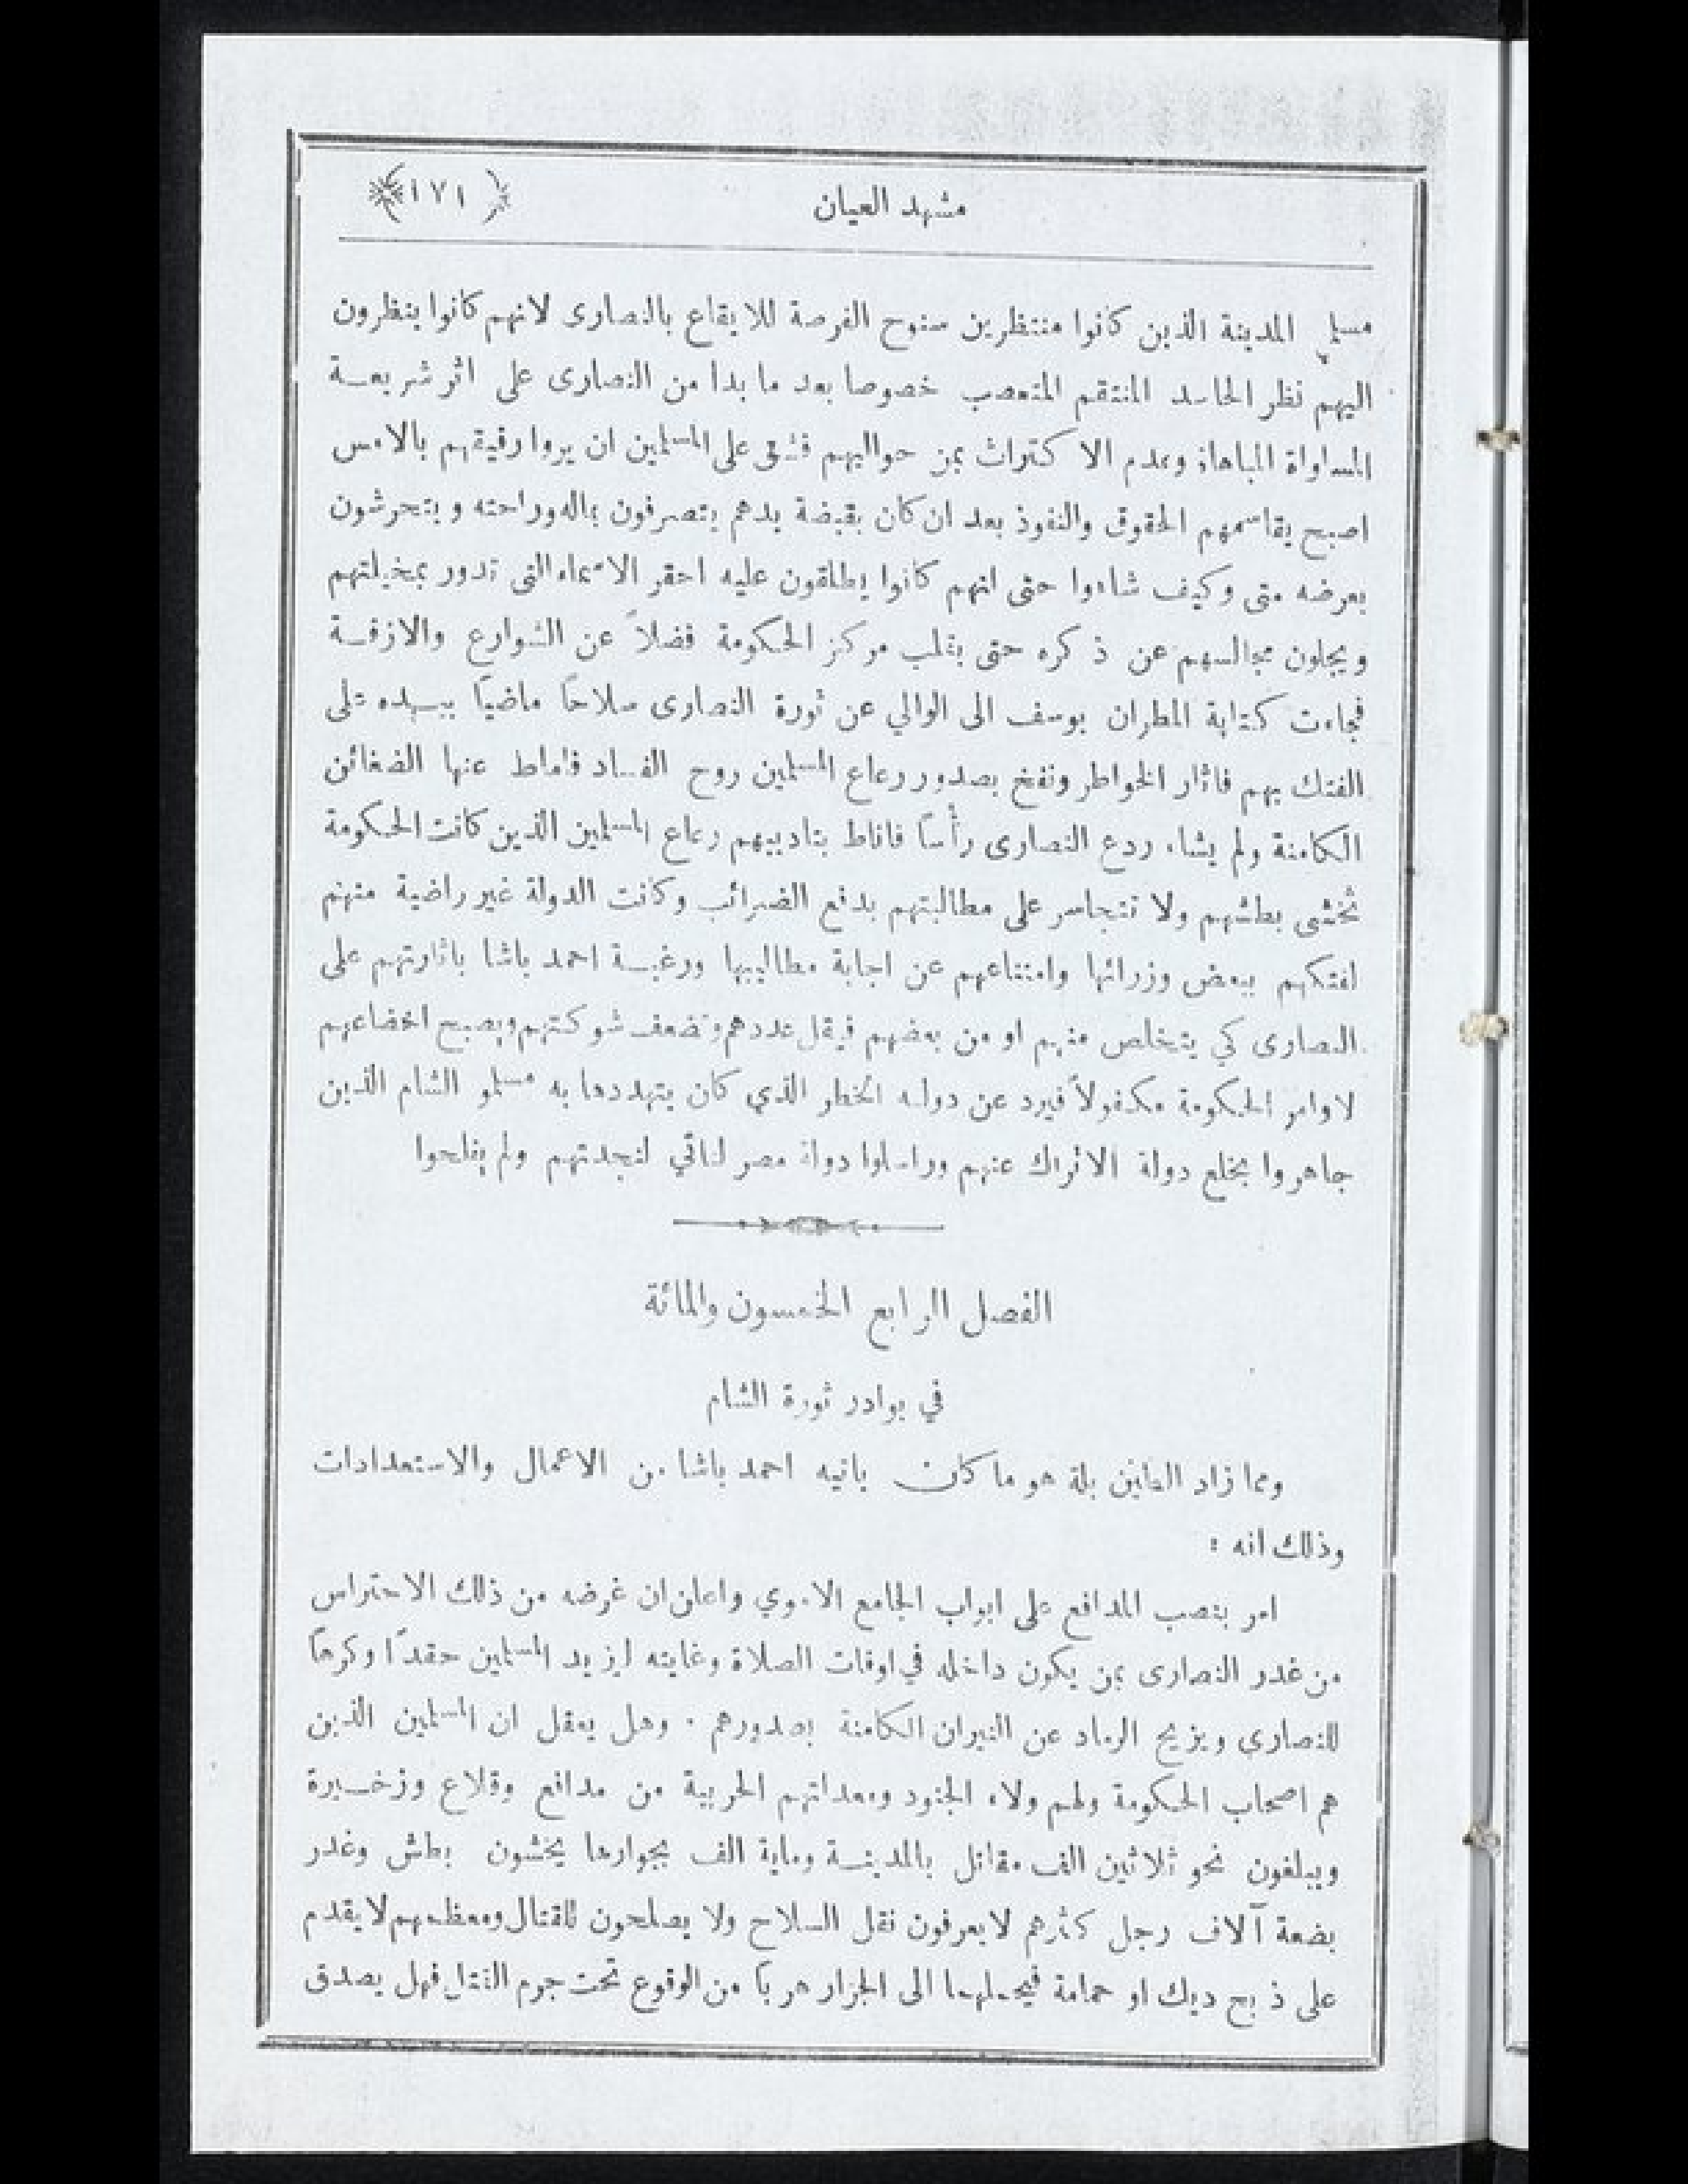 مشهد العيان
﴿ ١٧١ ﴾
مسلمي المدينة الذين كانوا منتظرين سنوح الفرصة للايقاع بالنصارى لانهم كانوا ينظرون
اليهم نظر الحاسد المنتقم المتعصب خصوصا بعد ما بدا من النصارى على اثر شريعة
المساواة المباهاة وعدم الاكتراث بمن حواليهم فشق على المسلمين ان يروا رفيقهم بالامس
اصبح يقاسمهم الحقوق والنفوذ بعد ان كان بقبضة يدهم يتصرفون بماله وراحته ويتحرشون
بعرضه متى وكيف شاءوا حتى انهم كانوا يطلقون عليه احقر الاسماء التي تدور بمخيلتهم
ويجلون مجالسهم عن ذكره حتى بثلب مركز الحكومة فضلاً عن الشوارع والازقة
فجاءت كتابة المطران يوسف الى الوالي عن ثورة النصارى سلاحًا ماضيًا بيده على
الفتك بهم فاثار الخواطر ونفخ بصدور رعاع المسلمين روح الفساد فاماط عنها الضغائن
الكامنة ولم يشاء ردع النصارى رأسًا فاناط بتاديبهم رعاع المسلمين الذين كانت الحكومة
تخشى بطشهم ولا تتجاسر على مطالبتهم بدفع الضرائب وكانت الدولة غير راضية منهم
لفتكهم ببعض وزرائها وامتناعهم عن اجابة مطاليبها ورغبة احمد باشا باثارتهم على
النصارى كي يتخلص منهم او من بعضهم فيقل عددهم وتضعف شوكتهم ويصبح اخضاعهم
لاوامر الحكومة مكفولاً فيرد عن دولته الخطر الذي كان يتهددها به مسلمو الشام الذين
جاهروا بخلع دولة الاتراك عنهم وراسلوا دولة مصر لتاتي لنجدتهم ولم يفلحوا
الفصل الرابع الخمسون والمائة
في بوادر ثورة الشام
ومما زاد الطين بلة هو ما كان ياتيه احمد باشا من الاعمال والاستعدادات
وذلك انه :
امر بنصب المدافع على ابواب الجامع الاموي واعلن ان غرضه من ذلك الاحتراس
من غدر النصارى بمن يكون داخله في اوقات الصلاة وغايته ليزيد المسلمين حقدًا وكرهًا
للنصارى ويزيح الرماد عن النيران الكامنة بصدورهم . وهل يعقل ان المسلمين الذين
هم اصحاب الحكومة ولهم ولاء الجنود ومعداتهم الحربية من مدافع وقلاع وزخيرة
ويبلغون نحو ثلاثين الف مقاتل بالمدينة وماية الف بجوارها يخشون بطش وغدر
بضعة آلاف رجل كثرهم لا يعرفون نقل السلاح ولا يصلحون للقتال ومعظمهم لا يقدم
على ذبح ديك او حمامة فيحملهما الى الجزار هربًا من الوقوع تحت جرم القتل فهل يصدق